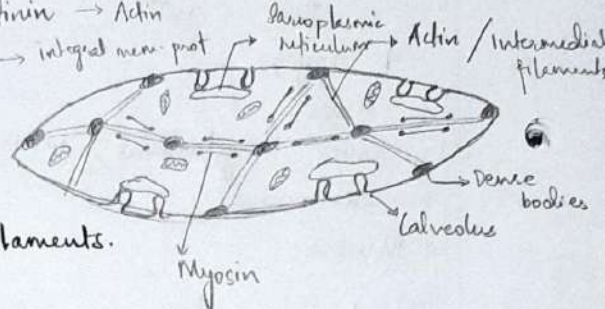 tinin → Actin
→ integral mem. prot
Sarcoplasmic
reticulum
Actin / Intermediat
filaments
Dense
bodies
Calveolus
laments.
Myosin